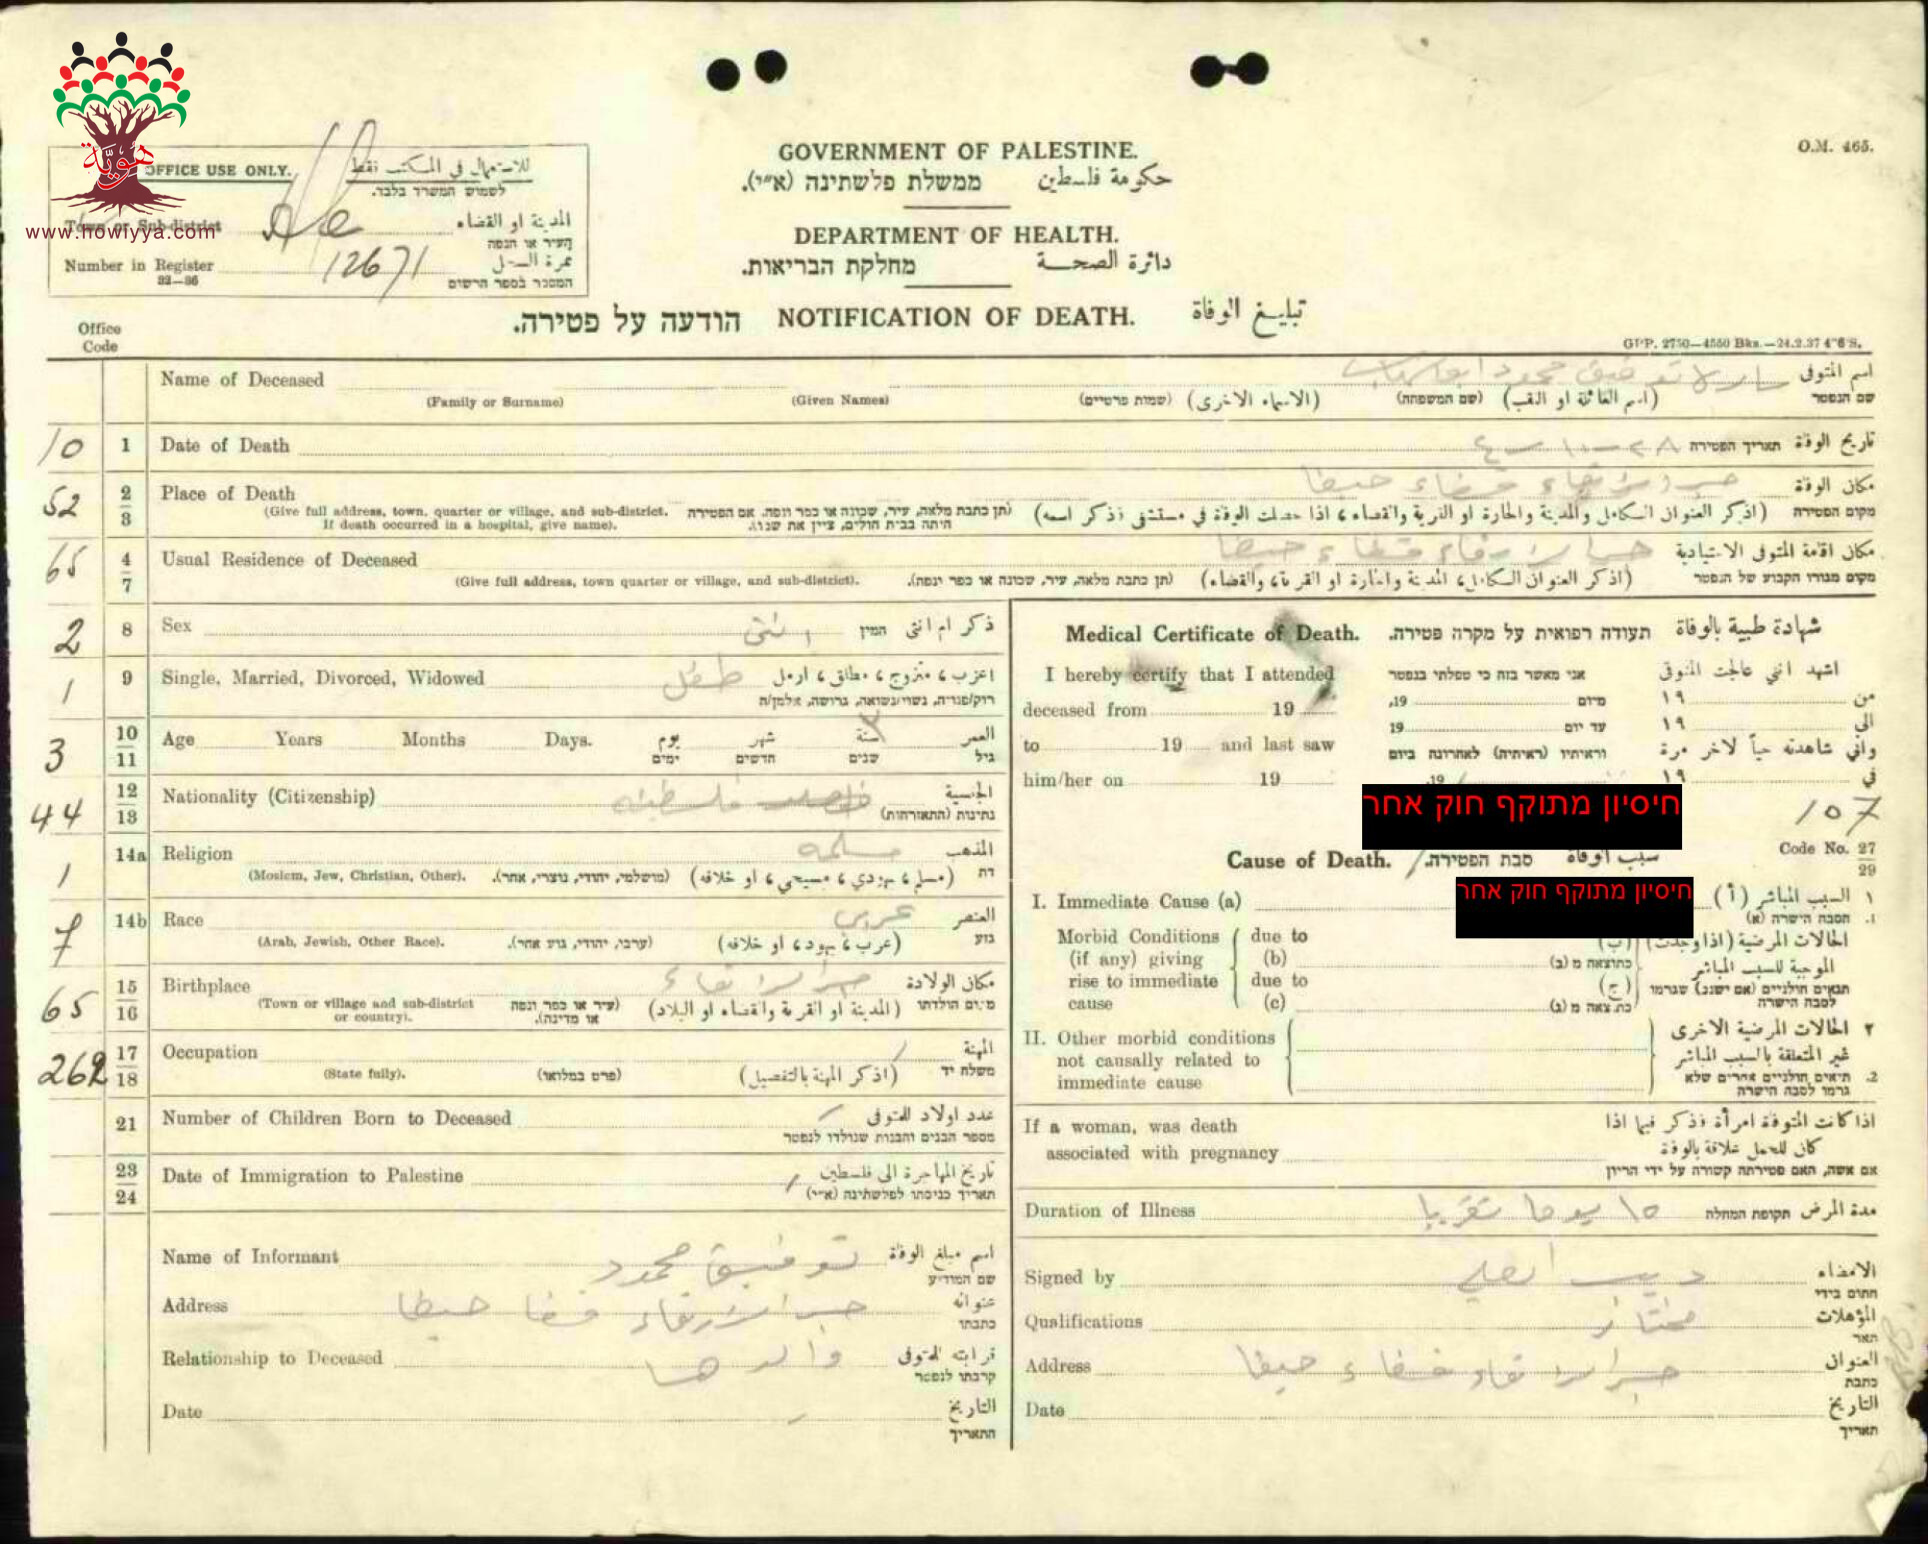 O.M. 465.
هوية
www.howiyya.com
OFFICE USE ONLY. للاستعمال في المكتب فقط
לשמוש המשרד בלבד.
Town or Sub-district المدينة او القضاء
העיר או הנפה
Number in Register 12671
32—36
המספר בספר הרשום
GOVERNMENT OF PALESTINE.
ממשלת פלשתינה (א״י). حكومة فلسطين
DEPARTMENT OF HEALTH.
מחלקת הבריאות. دائرة الصحة
הודעה על פטירה. NOTIFICATION OF DEATH. تبليغ الوفاة
Office
Code
GPP. 2750—4550 Bks.—24.2.37 4"6 S.
Name of Deceased محمود اسم المتوفى
(Family or Surname) (Given Names) (שמות פרטיים) (الاسماء الاخرى) (שם המשפחה) (اسم العائلة او اللقب) שם הנפטר
10 1 Date of Death תאריך הפטירה تاريخ الوفاة
52 2 3 Place of Death قضاء حيفا مكان الوفاة
(Give full address, town, quarter or village, and sub-district. If death occurred in a hospital, give name).
(תן כתבת מלאה, עיר, שכונה או כפר ונפה. אם הפטירה היתה בבית חולים, ציין את שמו).
(اذكر العنوان الكامل والمدينة والحارة او القرية والقضاء، اذا حصلت الوفاة في مستشفى فاذكر اسمه) מקום הפטירה
65 4 7 Usual Residence of Deceased قضاء حيفا مكان اقامة المتوفى الاعتيادية
(Give full address, town quarter or village, and sub-district). (תן כתבת מלאה, עיר, שכונה או כפר ונפה). (اذكر العنوان الكامل، المدينة والحارة او القرية، والقضاء) מקום מגורו הקבוע של הנפטר
2 8 Sex انثى המין ذكر ام انثى
1 9 Single, Married, Divorced, Widowed طفل اعزب، متزوج، مطلق، ارمل
רוק/פנויה, נשוי/נשואה, גרושה, אלמן/ה
3 10 11 Age Years Months Days. يوم شهر سنة ٣ العمر
ימים חדשים שנים גיל
44 12 13 Nationality (Citizenship) فلسطينه الجنسية
נתינות (התאזרחות)
1 14a Religion مسلمه المذهب
(Moslem, Jew, Christian, Other). (מושלמי, יהודי, נוצרי, אחר). (مسلم، يهودي، مسيحي، او خلافه) דת
7 14b Race عربي العنصر
(Arab, Jewish, Other Race). (ערבי, יהודי, גזע אחר). (عرب، يهود، او خلافه) גזע
65 15 16 Birthplace مكان الولادة
(Town or village and sub-district or country). (עיר או כפר ונפה או מדינה). (المدينة او القرية والقضاء او البلاد) מקום הולדתו
262 17 18 Occupation المهنة
(State fully). (פרט במלואו) (اذكر المهنة بالتفصيل) משלח יד
21 Number of Children Born to Deceased عدد اولاد المتوفى
מספר הבנים והבנות שנולדו לנפטר
23 24 Date of Immigration to Palestine تاريخ المهاجرة الى فلسطين
תאריך כניסתו לפלשתינה (א״י)
Name of Informant توفيق محمود اسم مبلغ الوفاة
שם המודיע
Address حيفا عنوانه
כתבתו
Relationship to Deceased والدها قرابته للمتوفى
קרבתו לנפטר
Date التاريخ
התאריך
Medical Certificate of Death. תעודה רפואית על מקרה פטירה. شهادة طبية بالوفاة
I hereby certify that I attended אני מאשר בזה כי טפלתי בנפטר اشهد انني عالجت المتوفى
deceased from 19 19, מיום من ١٩
to 19 and last saw 19 עד יום الى ١٩
וראיתיו (ראיתיה) לאחרונה ביום واني شاهدته حياً لاخر مرة
him/her on 19 19 في ١٩
חיסיון מתוקף חוק אחר
107
Cause of Death. סבת הפטירה. سبب الوفاة Code No. 27 29
חיסיון מתוקף חוק אחר
I. Immediate Cause (a) ١ السبب المباشر (أ)
1. הסבה הישרה (א)
Morbid Conditions (if any) giving rise to immediate cause
due to (b)
due to (c)
الحالات المرضية (اذا وجدت) (ب)
الموجبة للسبب المباشر (ج)
תנאים חולניים (אם ישנם) שגרמו לסבה הישרה
כתוצאה מ (ב)
כתוצאה מ (ג)
II. Other morbid conditions not causally related to immediate cause
٢ الحالات المرضية الاخرى غير المتعلقة بالسبب المباشر
2. תנאים חולניים אחרים שלא גרמו לסבה הישרה
If a woman, was death associated with pregnancy
اذا كانت المتوفاة امرأة فذكر فيما اذا كان للحمل علاقة بالوفاة
אם אשה, האם פטירתה קשורה על ידי הריון
Duration of Illness ١٥ يوما تقريبا תקופת המחלה مدة المرض
Signed by ديب الامضاء
חתום בידי
Qualifications مختار المؤهلات
תאר
Address قضاء حيفا العنوان
כתבת
Date التاريخ
תאריך